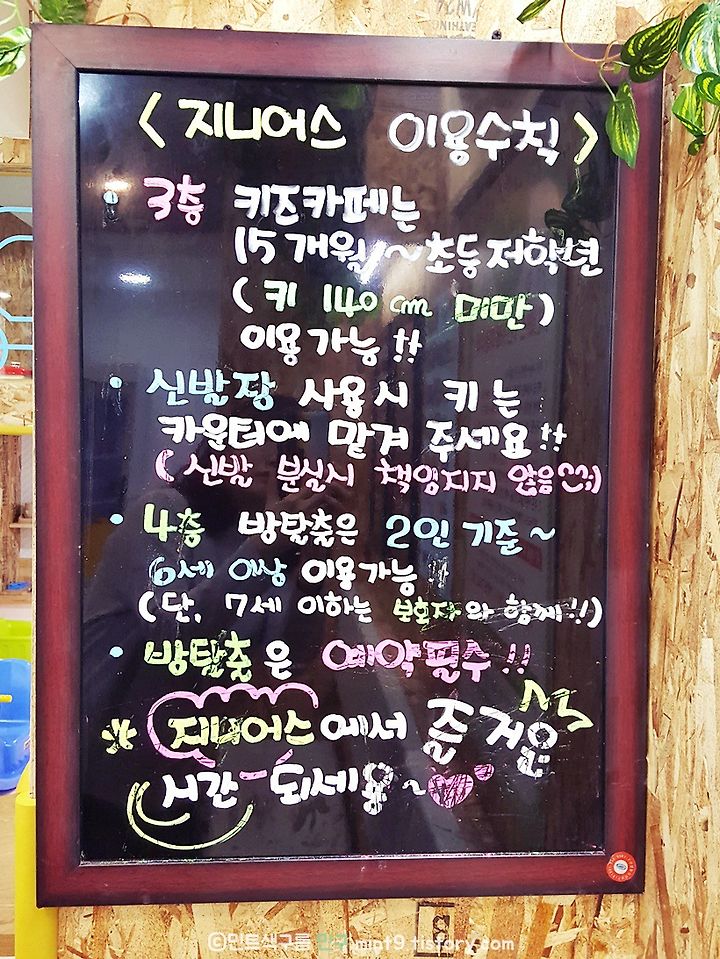 < 지니어스 이용수칙 >
• 3층 키즈카페는
15개월~초등저학년
(키 140cm 미만)
이용가능!!
• 신발장 사용시 키는
카운터에 맡겨 주세요!!
(신발 분실시 책임지지 않음^^;;)
• 4층 방탈출은 2인 기준~
6세 이상 이용가능
(단, 7세 이하는 보호자와 함께!!)
• 방탈출은 예약필수!!
* 지니어스에서 즐거운
시간 되세용~♥
©민트식구들 민구 mint9.tistory.com